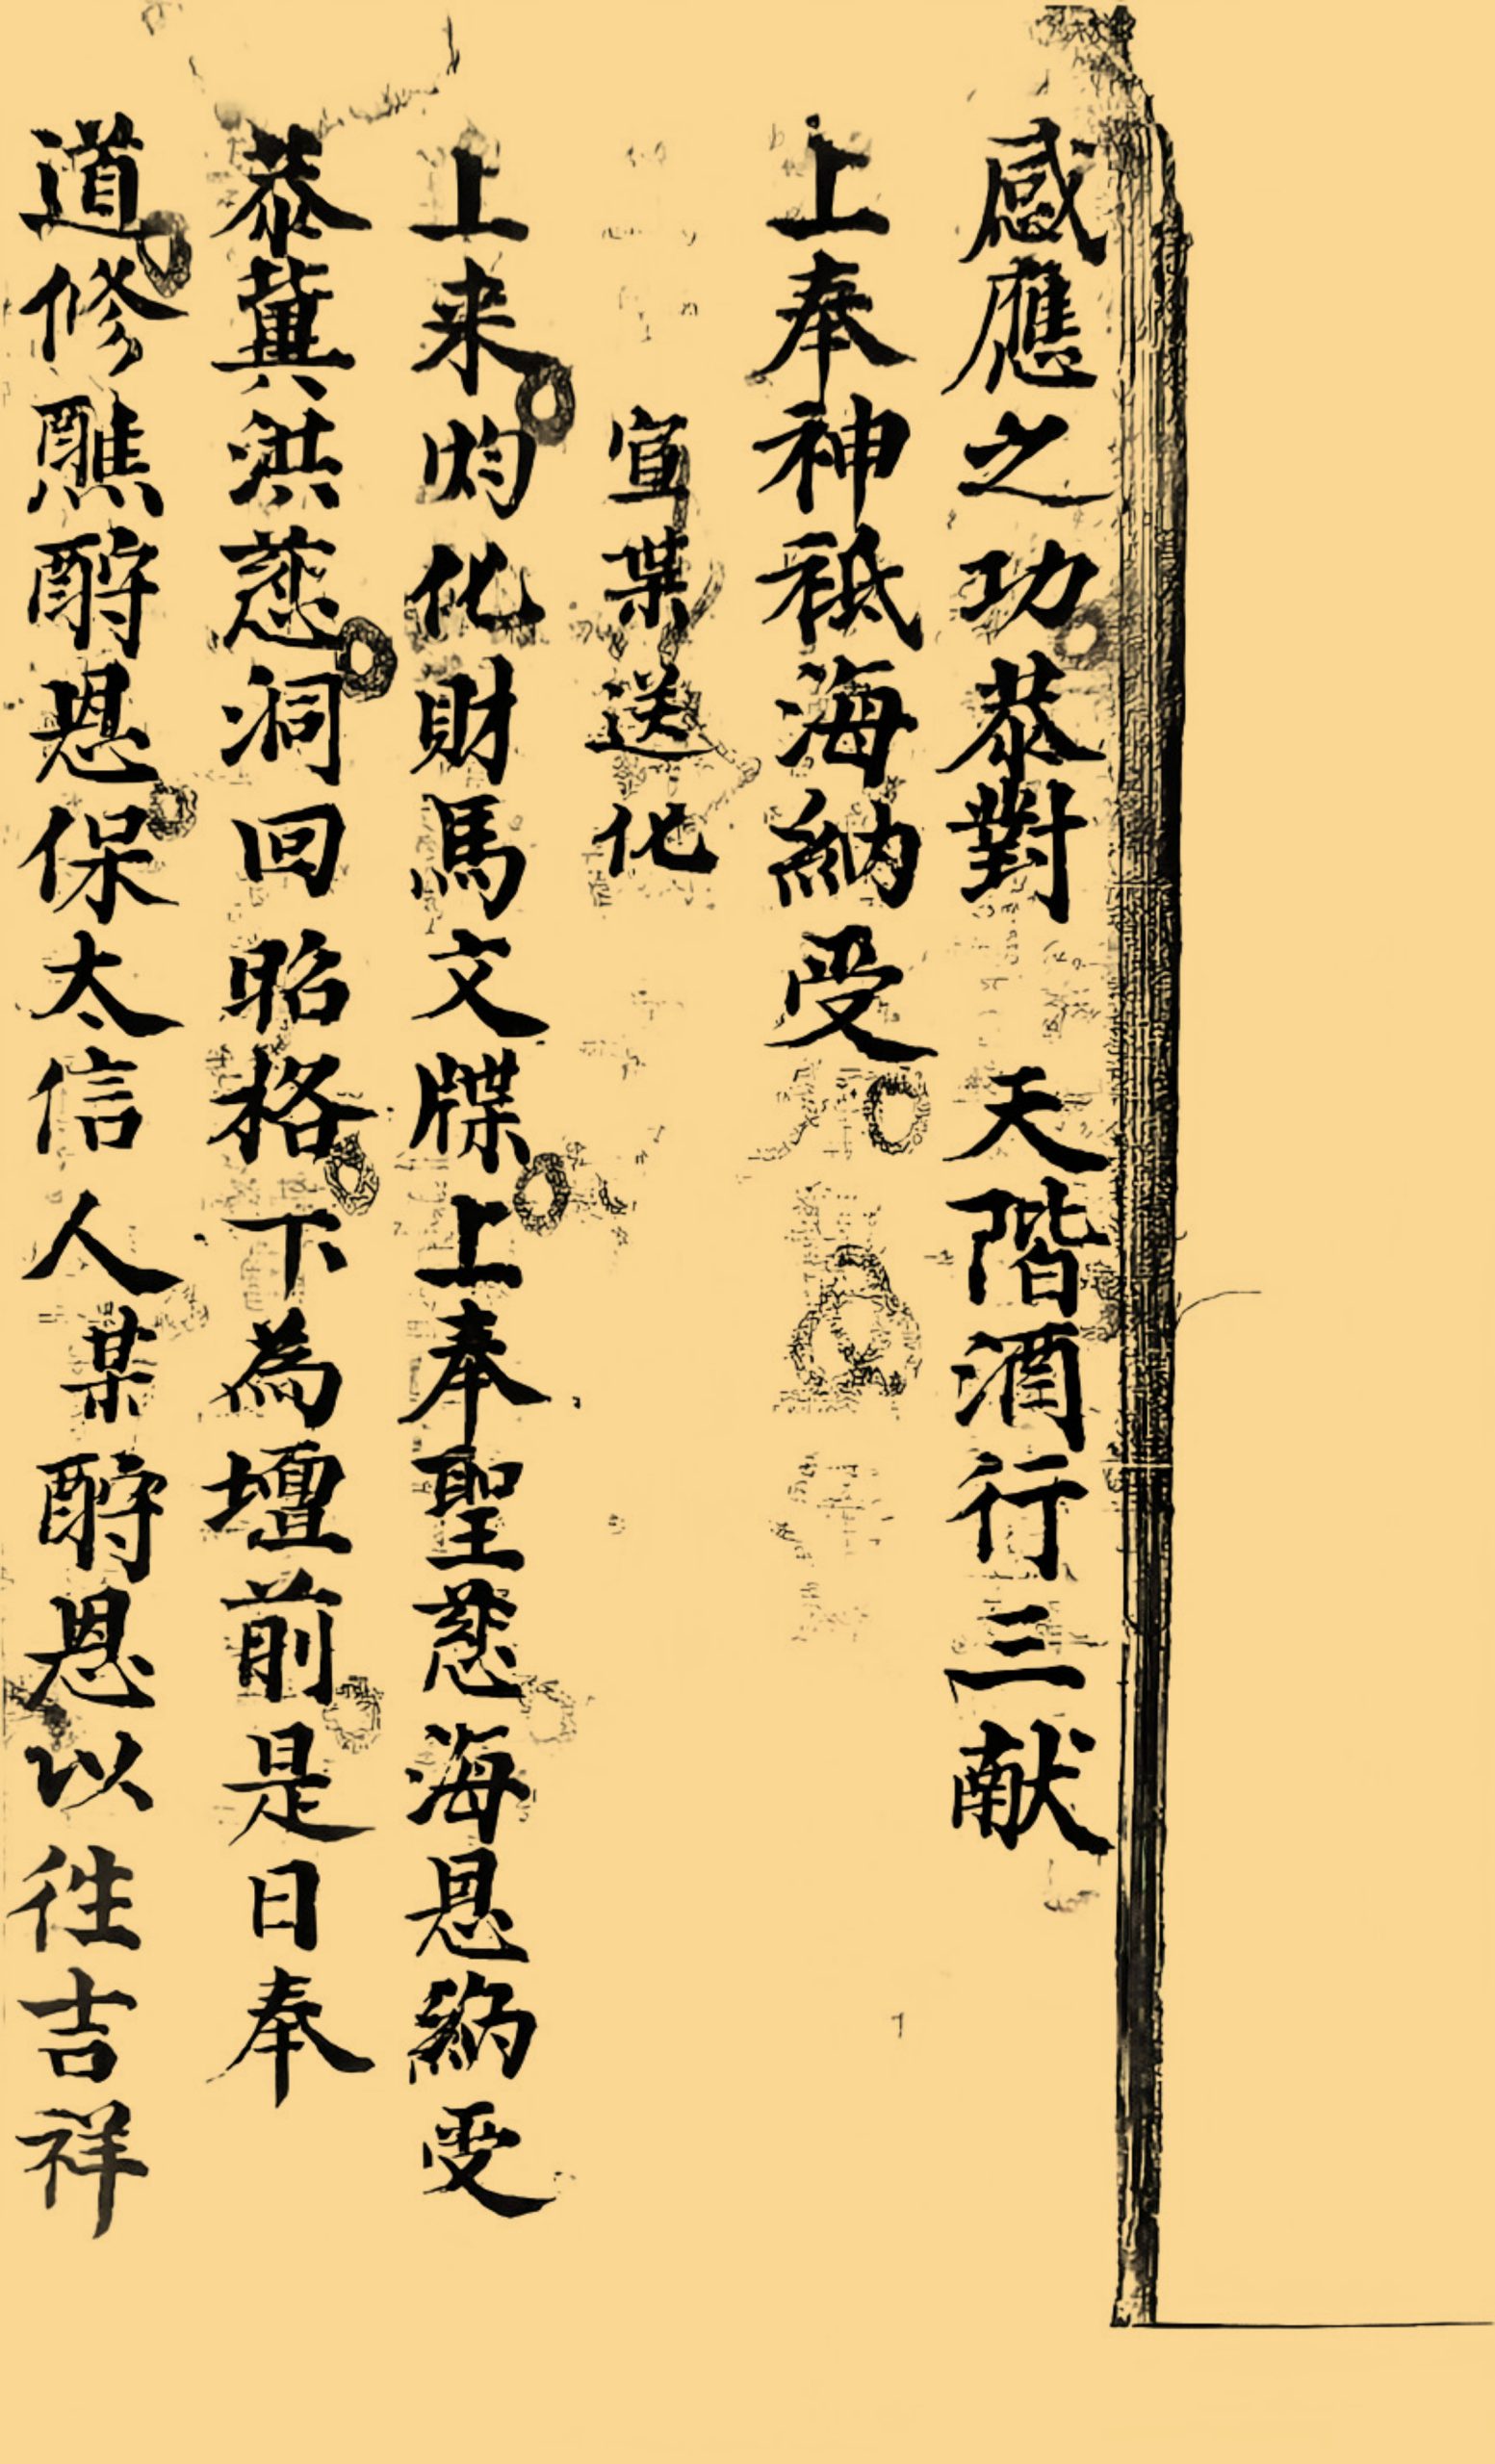 感應之功恭對　天階酒行三献
上奉神祇海納受
宣枼送化
上来灼化財馬文牒上奉聖慈海恩納受
恭冀洪慈洞回昭格下為壇前是日奉
道修醮酧恩保太信人某酧恩以徃吉祥